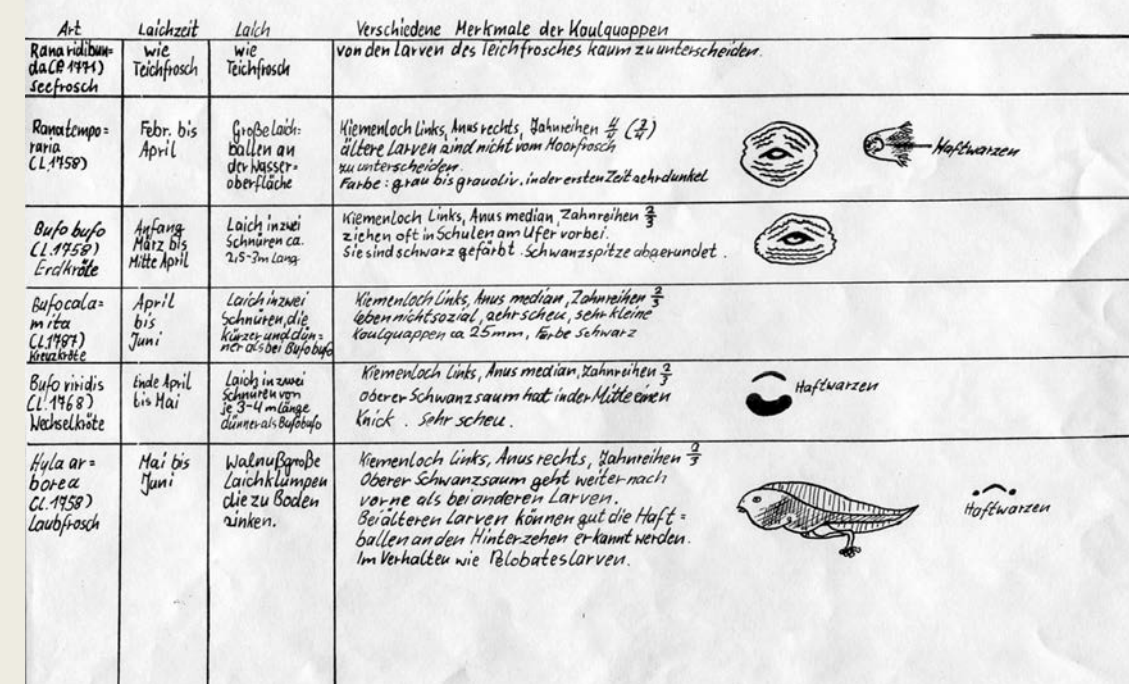 Art Laichzeit Laich Verschiedene Merkmale der Kaulquappen
Rana ridibun=
da (P. 1771)
Seefrosch
wie
Teichfrosch
wie
Teichfrosch
von den Larven des Teichfrosches kaum zu unterscheiden.
Rana tempo=
raria
(L. 1758)
Febr. bis
April
Große Laich=
ballen an
der Wasser=
oberfläche
Kiemenloch Links, Anus rechts, Zahnreihen
ältere Larven sind nicht vom Moorfrosch
zu unterscheiden.
Farbe: grau bis grauoliv. in der ersten Zeit sehr dunkel
Haftwarzen
Bufo bufo
(L. 1758)
Erdkröte
Anfang
März bis
Mitte April
Laich in zwei
Schnüren ca.
2,5-3m Lang
Kiemenloch Links, Anus median, Zahnreihen 2/3
ziehen oft in Schulen am Ufer vorbei.
Sie sind schwarz gefärbt. Schwanzspitze abgerundet.
Bufo cala=
mita
(L. 1787)
Kreuzkröte
April
bis
Juni
Laich in zwei
Schnüren, die
kürzer und dün=
ner als bei Bufo bufo
Kiemenloch Links, Anus median, Zahnreihen 2/3
leben nicht sozial, sehr scheu, sehr kleine
Kaulquappen ca 25mm, Farbe Schwarz
Bufo viridis
(L. 1768)
Wechselkröte
Ende April
bis Mai
Laich in zwei
Schnüren von
je 3-4 m länge
dünner als Bufo bufo
Kiemenloch Links, Anus median, Zahnreihen 2/3
oberer Schwanzsaum hat in der Mitte einen
Knick. Sehr scheu.
Haftwarzen
Hyla ar=
borea
(L. 1758)
Laubfrosch
Mai bis
Juni
Walnußgroße
Laichklumpen
die zu Boden
sinken.
Kiemenloch Links, Anus rechts, Zahnreihen 2/3
Oberer Schwanzsaum geht weiter nach
vorne als bei anderen Larven.
Bei älteren Larven können gut die Haft=
ballen an den Hinterzehen erkannt werden.
Im Verhalten wie Pelobateslarven.
Haftwarzen